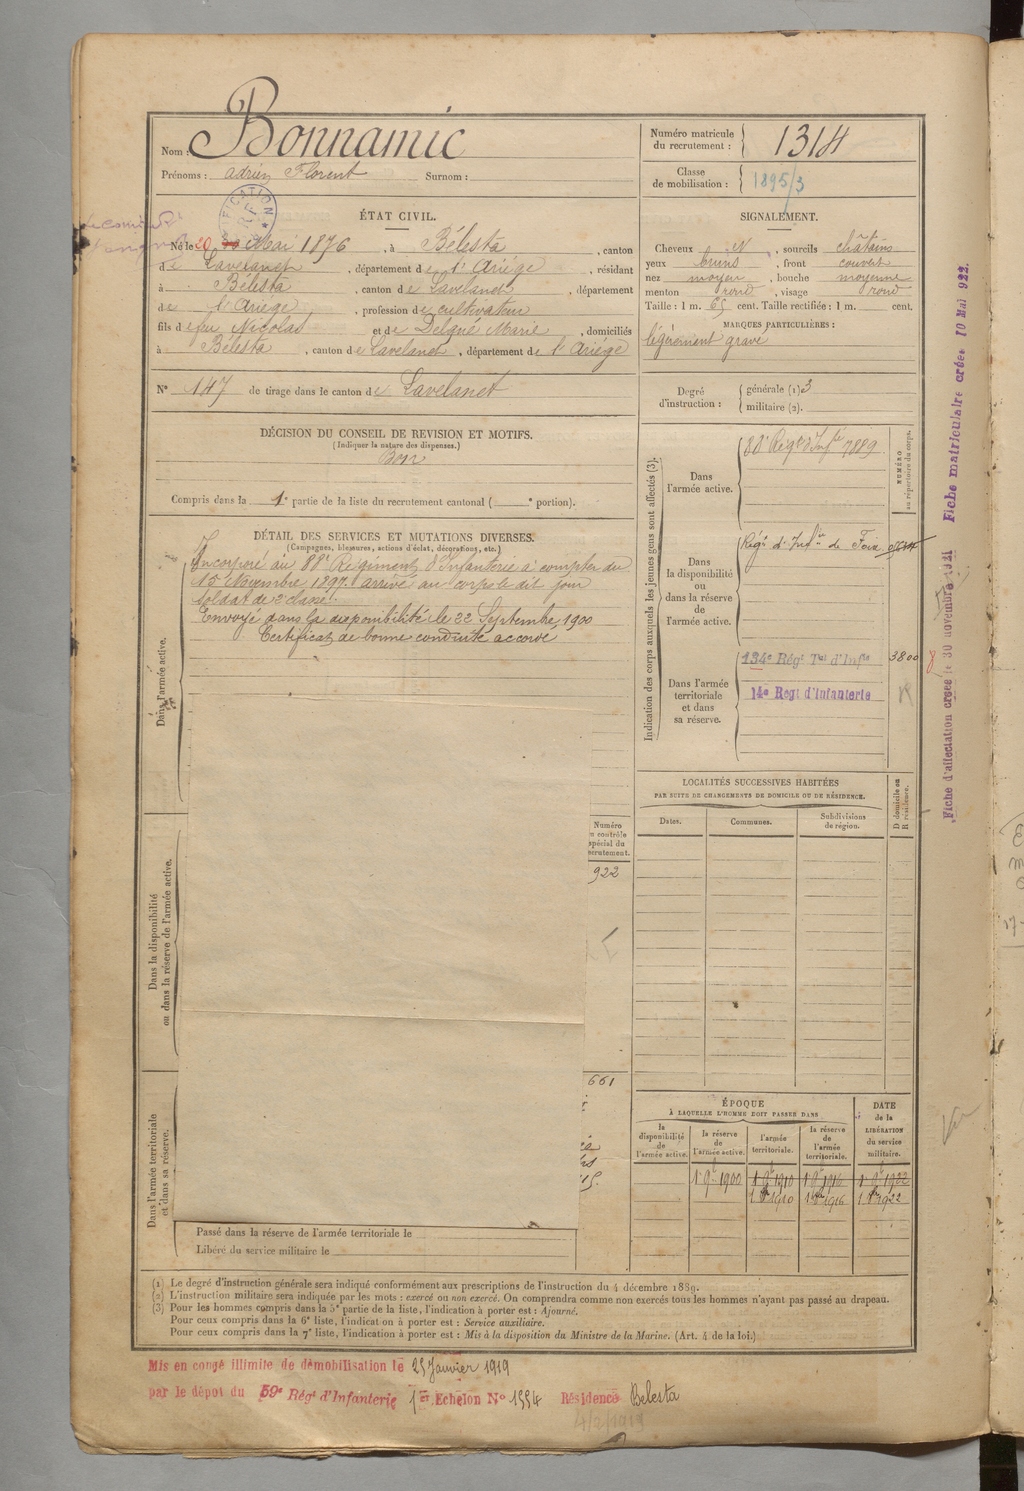 Nom : Bonnamic
Prénoms : Adrien Florent Surnom :
Numéro matricule du recrutement : 1314
Classe de mobilisation : 1895/3
ÉTAT CIVIL.
Né le 20 Mai 1876, à Bélesta, canton
de Lavelanet, département de l'Ariége, résidant
à Bélesta, canton de Lavelanet, département
de l'Ariége, profession de cultivateur
fils de feu Nicolas et de Delqué Marie, domiciliés
à Bélesta, canton de Lavelanet, département de l'Ariége
SIGNALEMENT.
Cheveux N, sourcils châtains
yeux bruns, front couvert
nez moyen, bouche moyenne
menton rond, visage rond
Taille : 1 m. 65 cent. Taille rectifiée : 1 m. cent.
MARQUES PARTICULIÈRES :
légérement gravé
N° 147 de tirage dans le canton de Lavelanet
Degré d'instruction : générale (1) 3
militaire (2).
DÉCISION DU CONSEIL DE REVISION ET MOTIFS.
(Indiquer la nature des dispenses.)
Bon
Compris dans la 1e partie de la liste du recrutement cantonal ( e portion).
DÉTAIL DES SERVICES ET MUTATIONS DIVERSES.
(Campagnes, blessures, actions d'éclat, décorations, etc.)
Incorporé au 88e Régiment d'Infanterie à compter du
15 Novembre 1897. arrivé au corps le dit jour
soldat de 2e classe.
Envoyé dans la disponibilité le 22 Septembre 1900
Certificat de bonne conduite accordé
Dans l'armée active.
Dans la disponibilité
ou dans la réserve de l'armée active.
Dans l'armée territoriale
et dans sa réserve.
Indication des corps auxquels les jeunes gens sont affectés (3).
NUMÉRO
au répertoire du corps.
Dans l'armée active.
88e Régt d'Infie 7889
Dans la disponibilité ou dans la réserve de l'armée active.
Régt d'Infie de Foix
Dans l'armée territoriale et dans sa réserve.
134e Régt Tal d'Infie 3800
14e Regt d'Infanterie
Fiche d'affectation créée le 30 novembre 1921
Fiche matriculaire créée 10 Mai 922.
LOCALITÉS SUCCESSIVES HABITÉES
PAR SUITE DE CHANGEMENTS DE DOMICILE OU DE RÉSIDENCE.
Dates. Communes. Subdivisions de région.
D domicile ou R résidence.
Numéro
contrôle
spécial du
recrutement.
922
661
ÉPOQUE
À LAQUELLE L'HOMME DOIT PASSER DANS
la disponibilité de l'armée active.
la réserve de l'armée active.
l'armée territoriale.
la réserve de l'armée territoriale.
DATE de la LIBÉRATION du service militaire.
1 9bre 1900 1 9bre 1910 1 9bre 1916 1 9bre 1922
1910 1916 1922
Passé dans la réserve de l'armée territoriale le
Libéré du service militaire le
(1) Le degré d'instruction générale sera indiqué conformément aux prescriptions de l'instruction du 4 décembre 1889.
(2) L'instruction militaire sera indiquée par les mots : exercé ou non exercé. On comprendra comme non exercés tous les hommes n'ayant pas passé au drapeau.
(3) Pour les hommes compris dans la 5e partie de la liste, l'indication à porter est : Ajourné.
Pour ceux compris dans la 6e liste, l'indication à porter est : Service auxiliaire.
Pour ceux compris dans la 7e liste, l'indication à porter est : Mis à la disposition du Ministre de la Marine. (Art. 4 de la loi.)
Mis en congé illimité de démobilisation le 25 Janvier 1919
par le dépot du 59e Régt d'Infanterie 1er Echelon N° 1554 Résidence Belesta